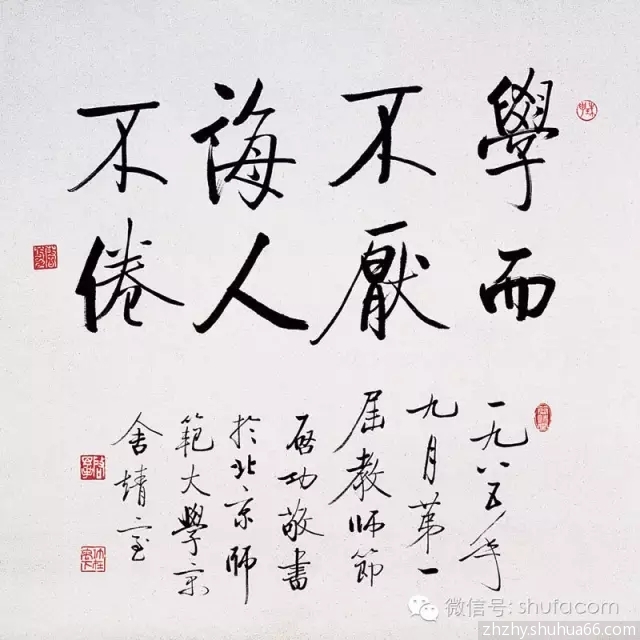 學而
不厭
誨人
不倦
一九八五年
九月第一
屆教師節
啓功敬書
於北京師
範大學京
舍
微信号: shufacom
zhzhy.shuhua66.com